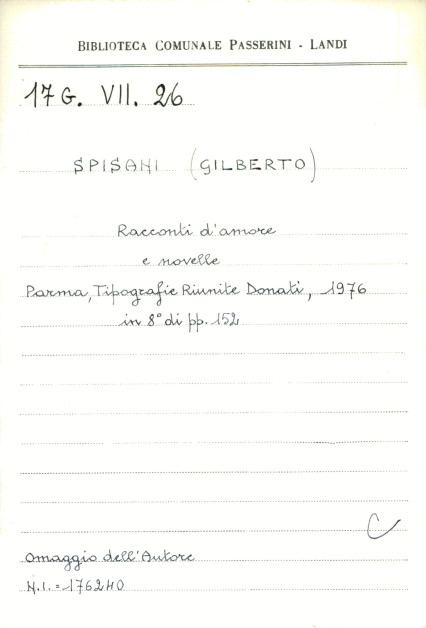 BIBLIOTECA COMUNALE PASSERINI - LANDI
17 G. VII. 26
SPISANI (GILBERTO)
Racconti d'amore
e novelle
Parma, Tipografie Riunite Donati, 1976
in 8° di pp. 152
C
Omaggio dell'Autore
N.I. = 176240